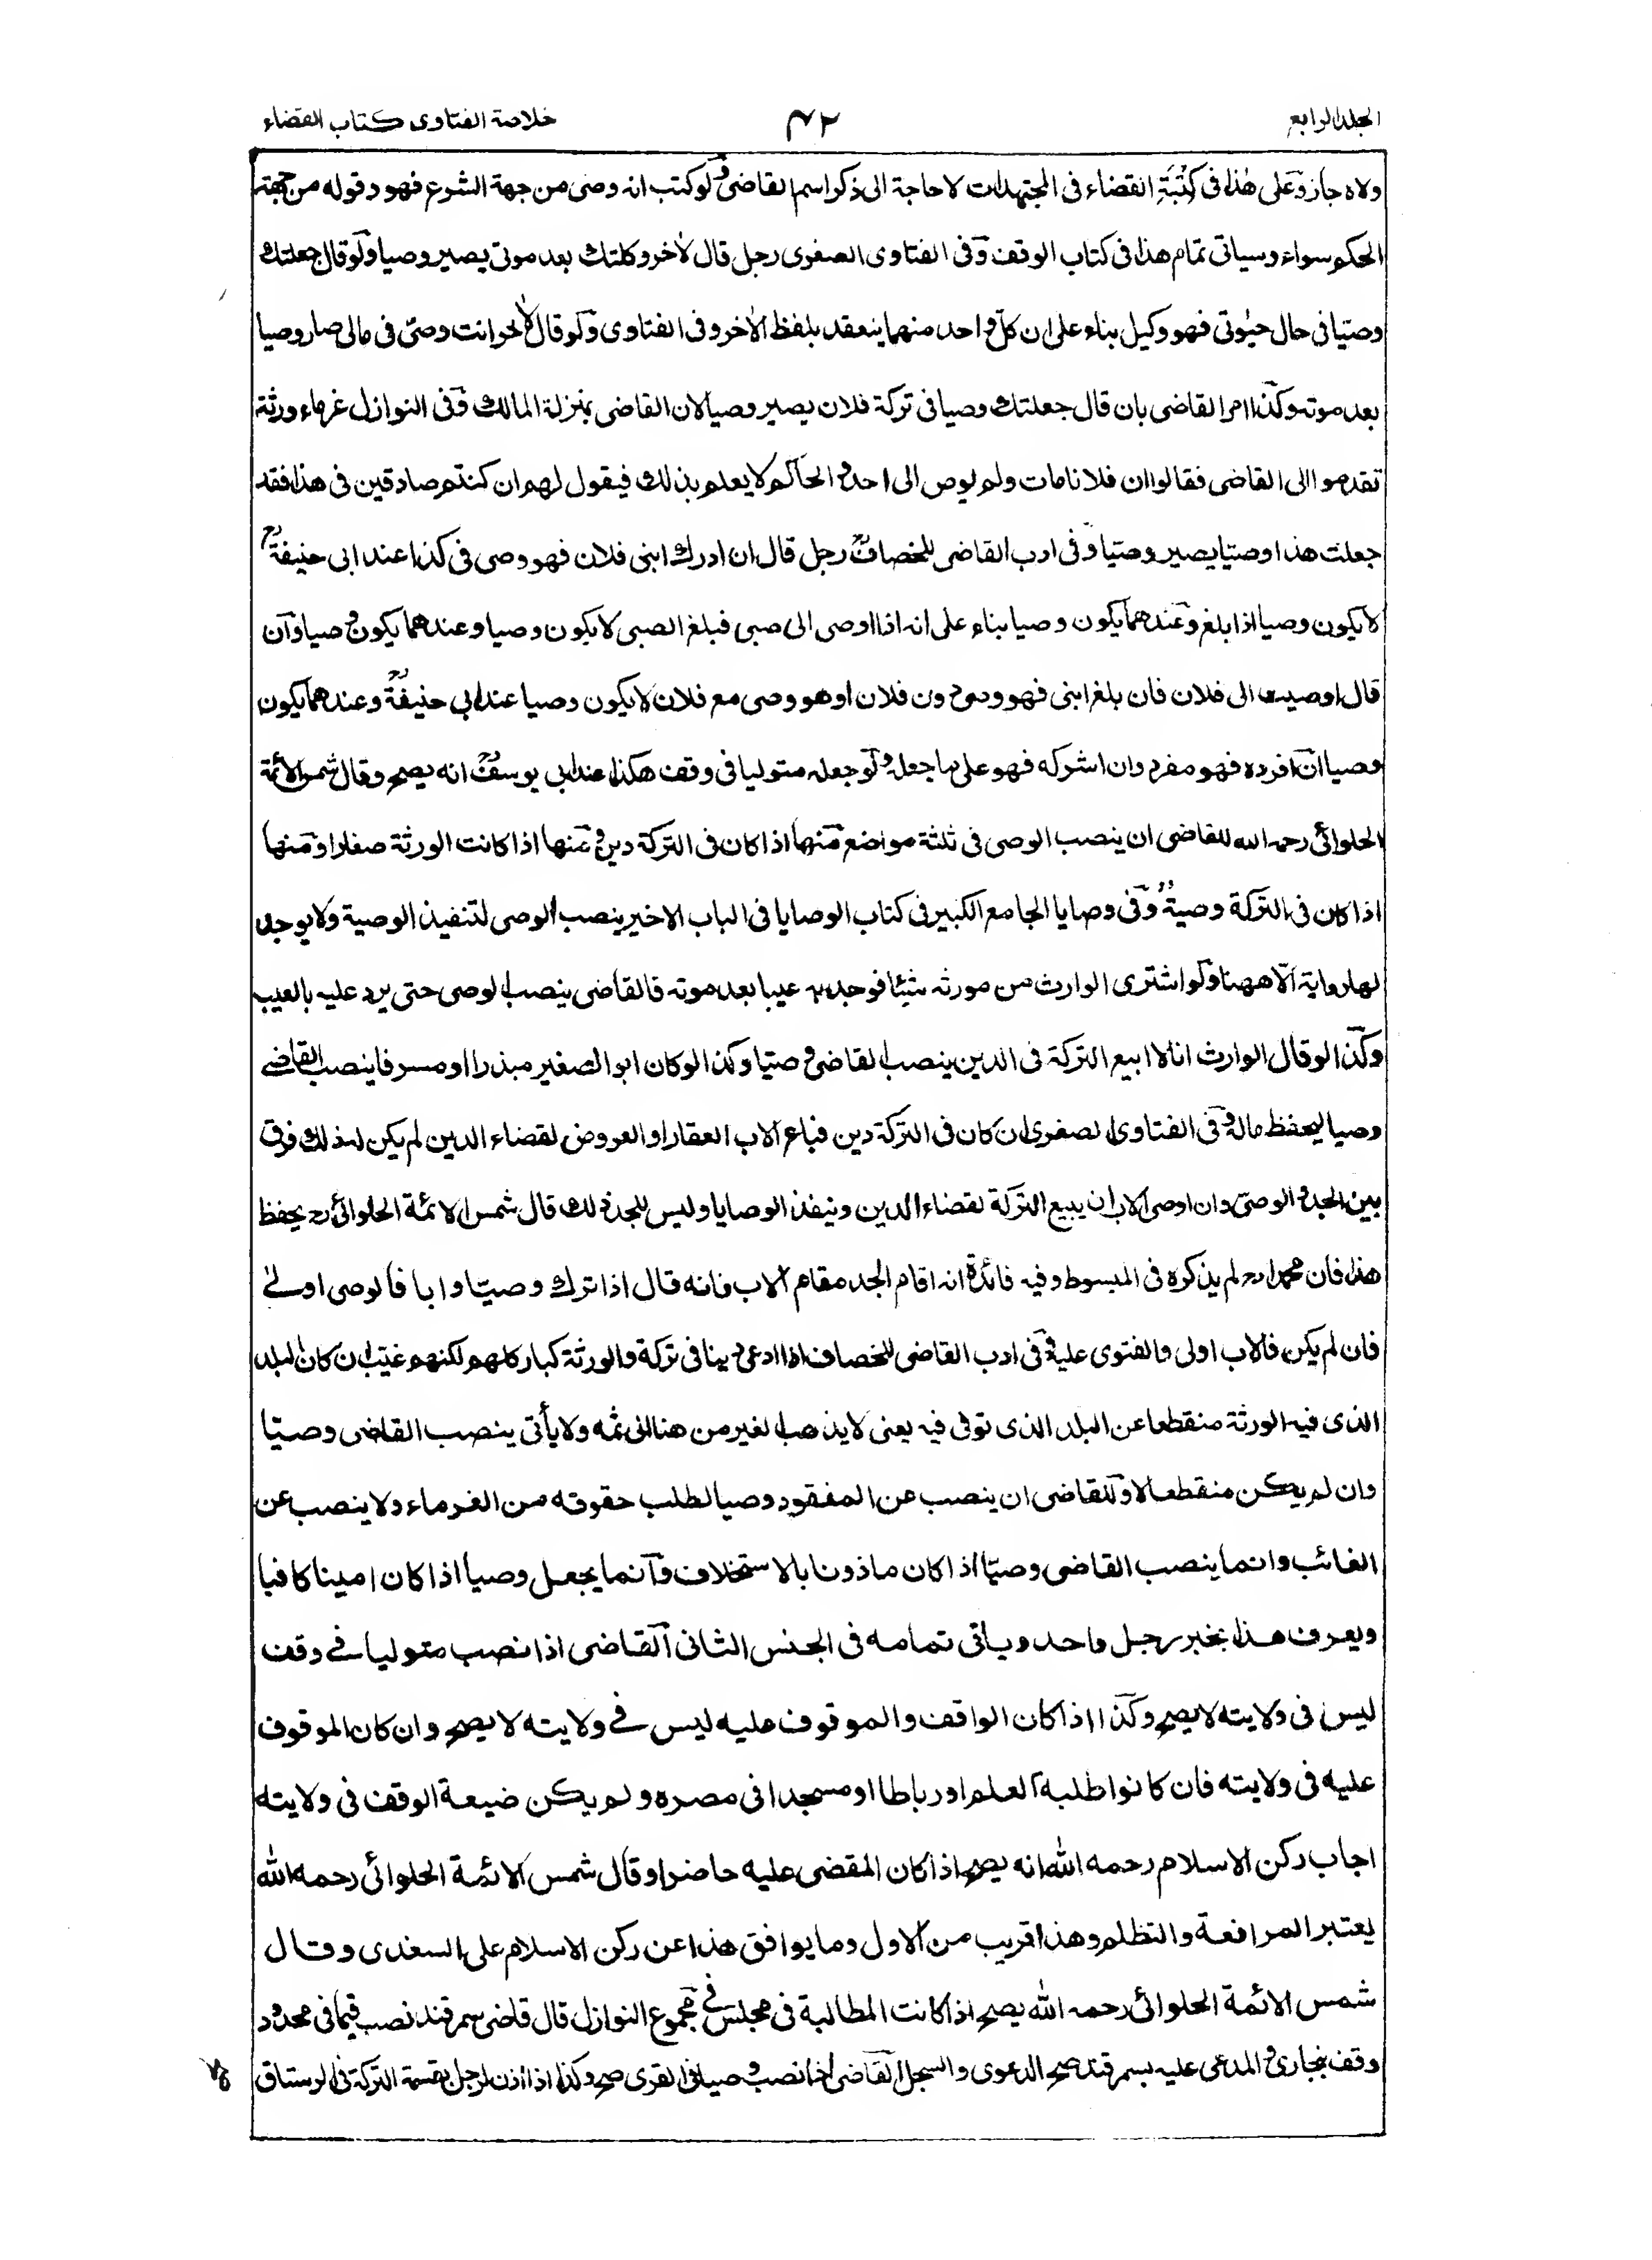 الجلد الرابع ٤٢ خلاصة الفتاوى كتاب القضاء
ولاه جاز وعلى هذا فى كتبة القضاء فى المجتهدات لا حاجة الى ذكر اسم القاضى ولو كتب انه وصى من جهة الشرع فهو وقوله من جهة
الحكم سواء وسياتى تمام هذا فى كتاب الوقف وفى الفتاوى الصغرى رجل قال لآخر وكلتك بعد موتى يصير وصيا ولو قال جعلتك
وصيّا فى حال حيٰوتى فهو وكيل بناء على ان كلّ واحد منهما ينعقد بلفظ الآخر وفى الفتاوى ولو قال لآخر انت وصىّ فى مالى صار وصيا
بعد موته وكذا امر القاضى بان قال جعلتك وصيا فى تركة فلان يصير وصيا لان القاضى بمنزلة المالك وفى النوازل غرماء ورثة
تقدموا الى القاضى فقالوا ان فلانا مات ولم يوص الى احد والحاكم لا يعلم بذلك فيقول لهم ان كنتم صادقين فى هذا فقد
جعلت هذا وصيّا يصير وصيّا وفى ادب القاضى للخصافؒ رجل قال ان ادرك ابنى فلان فهو وصى فى كذا عند ابى حنيفةؒ
لا يكون وصيا اذا بلغ وعندهما يكون وصيا بناء على انه اذا اوصى الى صبى فبلغ الصبى لا يكون وصيا وعندهما يكون وصيا وان
قال اوصيت الى فلان فان بلغ ابنى فهو وصى دون فلان او هو وصى مع فلان لا يكون وصيا عند ابى حنيفةؒ وعندهما يكون
وصيا ان افرده فهو مفرد وان اشركه فهو على ما جعله ولو جعله متوليا فى وقف هكذا عند ابى يوسفؒ انه يصح وقال شمس الائمة
الحلوائى رحمه الله للقاضى ان ينصب الوصى فى ثلثة مواضع منها اذا كان فى التركة دين ومنها اذا كانت الورثة صغارا ومنها
اذا كان فى التركة وصية وفى وصايا الجامع الكبير فى كتاب الوصايا فى الباب الاخير ينصب الوصى لتنفيذ الوصية ولا يوجد
لها رواية الّا ههنا ولو اشترى الوارث من مورثه شيئا فوجد به عيبا بعد موته فالقاضى ينصب الوصى حتى يرد عليه بالعيب
وكذا لو قال الوارث انا لا ابيع التركة فى الدين ينصب القاضى وصيّا وكذا لو كان ابو الصغير مبذرا او مسرفا ينصب القاضى
وصيا ليحفظ ماله وفى الفتاوى الصغرى ان كان فى التركة دين فباع الاب العقار او العروض لقضاء الدين لم يكن له ذلك فرق
بين الجد والوصىّ وان اوصى الاب ان يبيع التركة لقضاء الدين وتنفذ الوصايا وليس للجد ذلك قال شمس الائمة الحلوائى رح يحفظ
هذا فان محمدا رح لم يذكره فى المبسوط وفيه فائدة انه اقام الجد مقام الاب فانه قال اذا ترك وصيّا وابا فالوصى اولى
فان لم يكن فالاب اولى والفتوى عليه وفى ادب القاضى للخصاف اذا ادعى دينا فى تركة والورثة كبار كلهم لكنهم غيّب ان كان البلد
الذى فيه الورثة منقطعا عن البلد الذى توفى فيه يعنى لا يذهب العير من هنا الى ثمه ولا يأتى ينصب القاضى وصيّا
وان لم يكن منقطعا لا وللقاضى ان ينصب عن المفقود وصيا لطلب حقوقه من الغرماء ولا ينصب عن
الغائب وانما ينصب القاضى وصيّا اذا كان ماذونا بالاستخلاف وانما يجعل وصيا اذا كان امينا كافيا
ويعرف هذا بخبر رجل واحد وياتى تمامه فى الجنس الثانى القاضى اذا نصب متوليا فى وقف
ليس فى ولايته لا يصح وكذا اذا كان الواقف والموقوف عليه ليس فى ولايته لا يصح وان كان الموقوف
عليه فى ولايته فان كانوا طلبة العلم او رباطا او مسجدا فى مصره ولم يكن ضيعة الوقف فى ولايته
اجاب ركن الاسلام رحمه الله انه يصح اذا كان المقضى عليه حاضرا وقال شمس الائمة الحلوائى رحمه الله
يعتبر المرافعة والتظلم وهذا قريب من الاول وما يوافق هذا عن ركن الاسلام على السغدى وقال
شمس الائمة الحلوائى رحمه الله يصح اذا كانت المطالبة فى مجلس فى مجموع النوازل قال قاضى سمرقند نصب قيما فى محدود
وقف ببخارى والمدعى عليه بسمرقند صح الدعوى والسجل القاضى اذا نصب وصيا فى القرى صح وكذا اذا اذن لرجل بقسمة التركة فى الرستاق